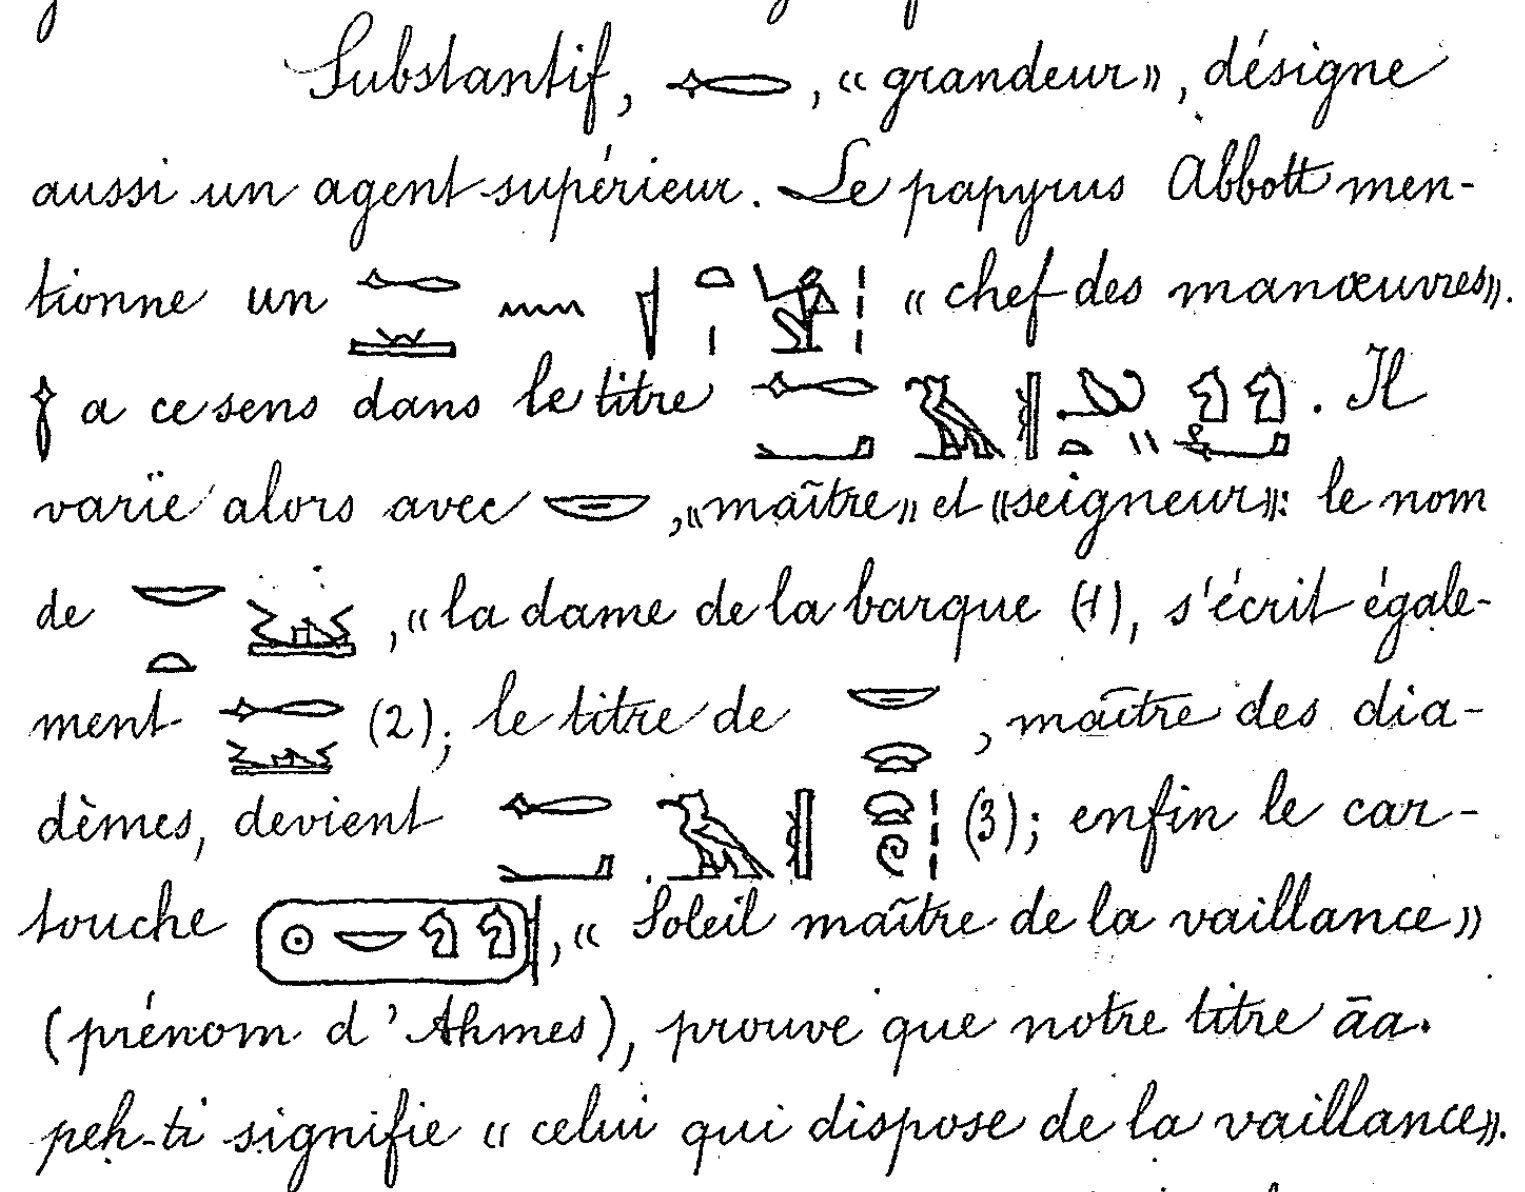 Substantif, 𓉻, « grandeur », désigne
aussi un agent supérieur. Le papyrus Abbott men-
tionne un « chef des manœuvres ».
𓉻 a ce sens dans le titre . Il
varie alors avec 𓎟, « maître » et « seigneur »: le nom
de , « la dame de la barque (1), s'écrit égale-
ment (2); le titre de , maître des dia-
dèmes, devient (3); enfin le car-
touche , « Soleil maître de la vaillance »
(prénom d'Ahmes), prouve que notre titre āa.
peh-ti signifie « celui qui dispose de la vaillance ».